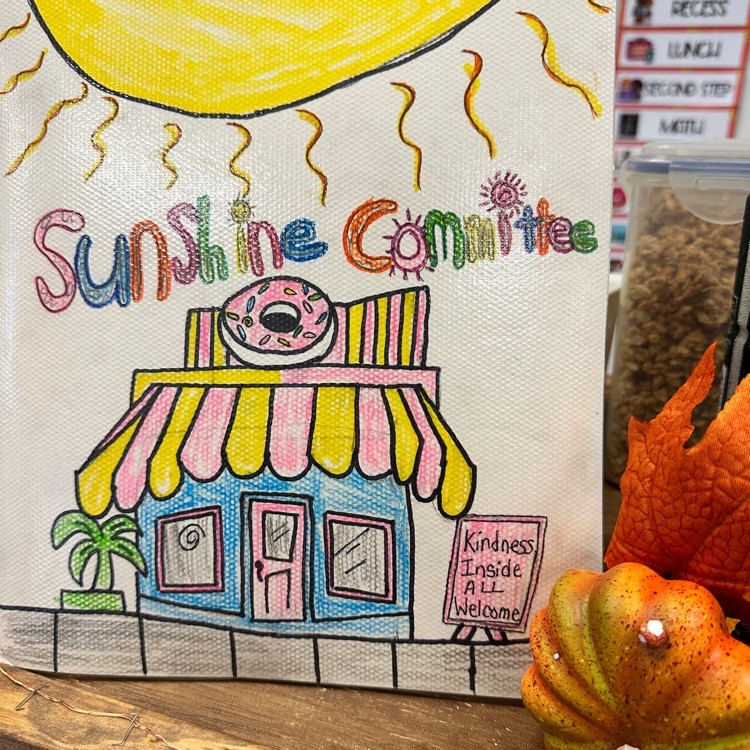 RECESS
LUNCH
SECOND STEP
MATH
Sunshine Committee
Kindness
Inside
ALL
Welcome